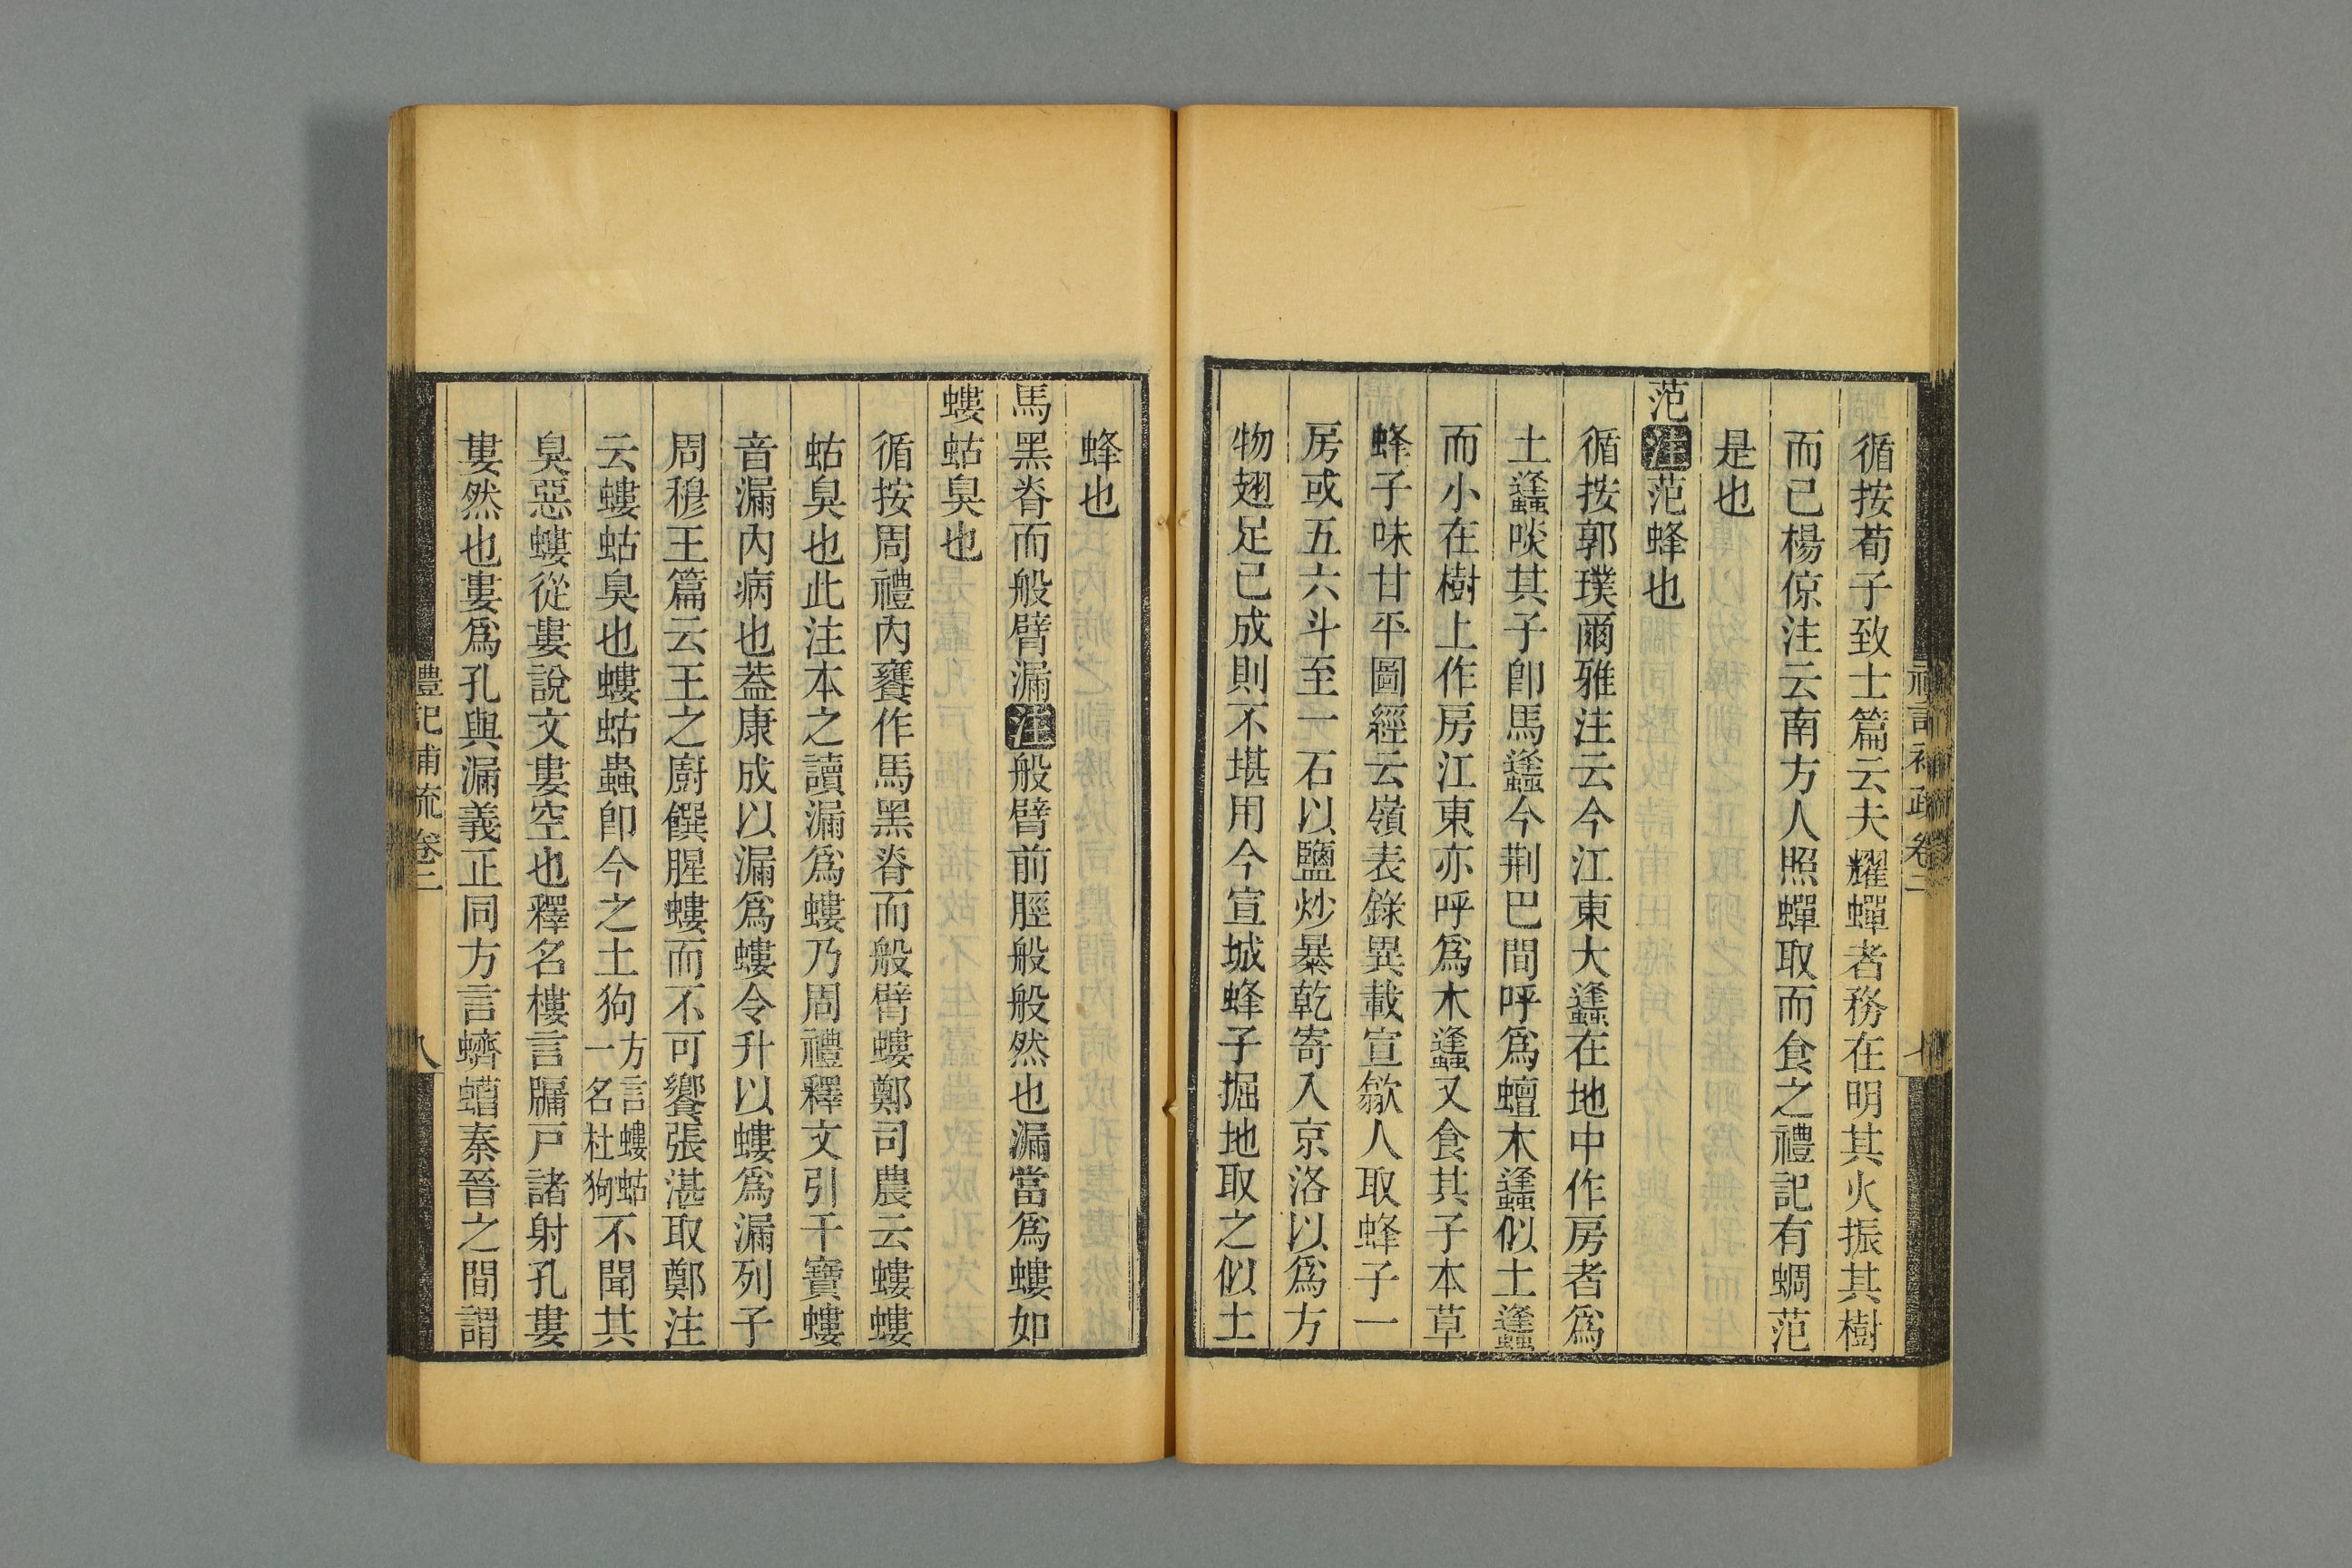 循按荀子致士篇云夫耀蟬者務在明其火振其樹
而已楊倞注云南方人照蟬取而食之禮記有蜩范
是也
范注范蜂也
循按郭璞爾雅注云今江東大䗬在地中作房者爲
土䗬啖其子卽馬䗬今荆巴間呼爲蟺木䗬似土䗬
而小在樹上作房江東亦呼爲木䗬又食其子本草
蜂子味甘平圖經云嶺表錄異載宣歙人取蜂子一
房或五六斗至一石以鹽炒暴乾寄入京洛以爲方
物翅足已成則不堪用今宣城蜂子掘地取之似土
蜂也
馬黑脊而般臂漏注般臂前脛般般然也漏當爲螻如
螻蛄臭也
循按周禮內饔作馬黑脊而般臂螻鄭司農云螻螻
蛄臭也此注本之讀漏爲螻乃周禮釋文引干寶螻
音漏內病也葢康成以漏爲螻令升以螻爲漏列子
周穆王篇云王之廚饌腥螻而不可饗張湛取鄭注
云螻蛄臭也螻蛄蟲卽今之土狗方言螻蛄一名杜狗不聞其
臭惡螻從婁說文婁空也釋名樓言牖戸諸射孔婁
婁然也婁爲孔與漏義正同方言蠐螬秦晉之間謂
禮記補疏卷二
八